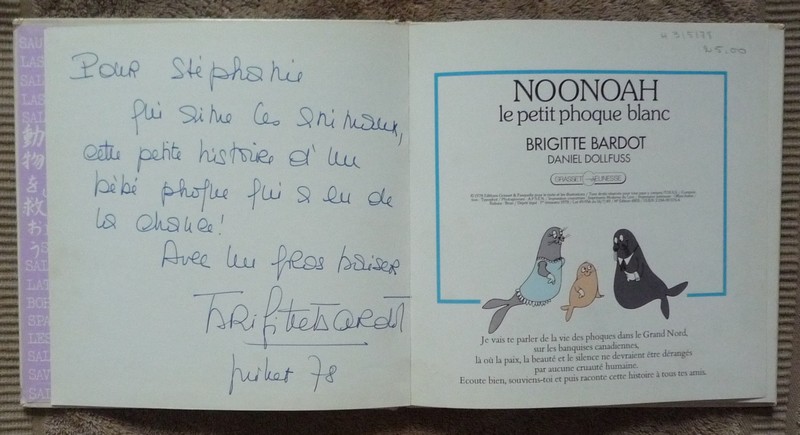 SAU
LAS
SAL
LAS
SAL
動物を救おう
SAL
LAT
BOR
SPA
LES
SAL
SAV
SAL
Pour Stéphanie
qui aime les animaux,
cette petite histoire d'un
bébé phoque qui a eu de
la chance!
Avec un gros baiser
Brigitte Bardot
juillet 78
£5.00
NOONOAH
le petit phoque blanc
BRIGITTE BARDOT
DANIEL DOLLFUSS
GRASSET JEUNESSE
Je vais te parler de la vie des phoques dans le Grand Nord,
sur les banquises canadiennes,
là où la paix, la beauté et le silence ne devraient être dérangés
par aucune cruauté humaine.
Ecoute bien, souviens-toi et puis raconte cette histoire à tous tes amis.